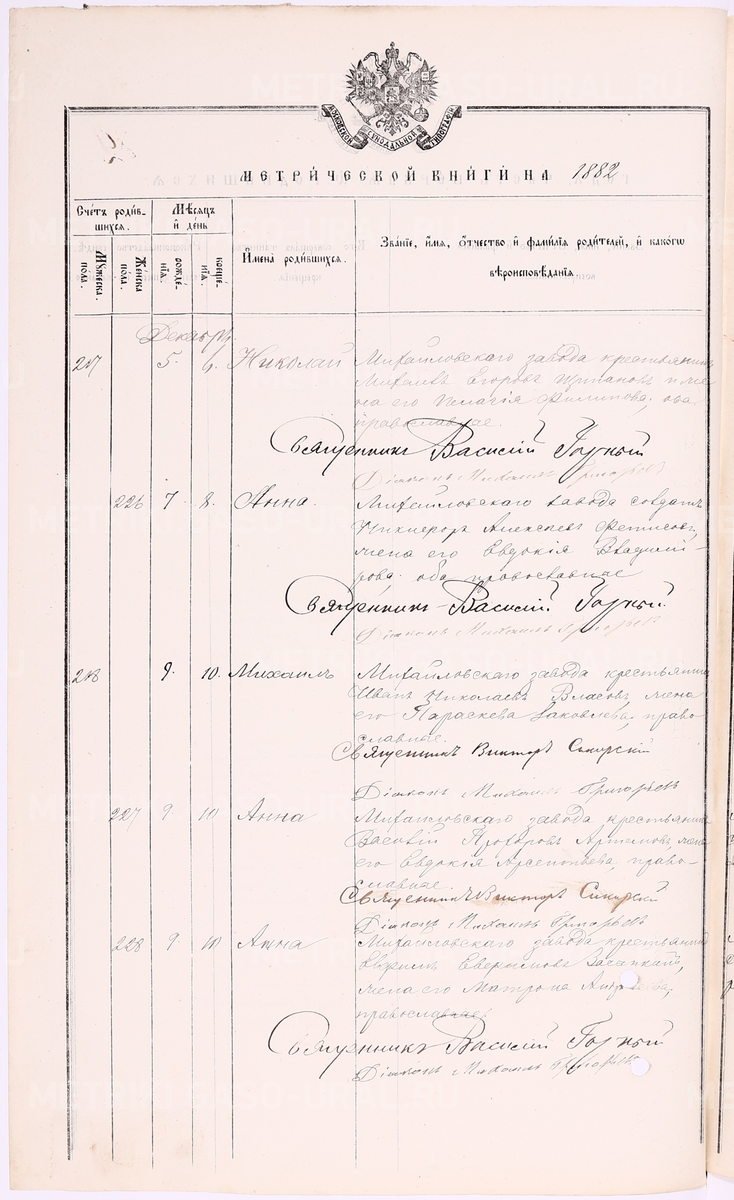 МОСКОВСКОЙ СѴНОДАЛЬНОЙ ТИПОГРАФІИ
МЕТРИ́ЧЕСКОЙ КНИ́ГИ НА 1882
Сче́тъ роди́вшихся.
Мѣ́сяцъ и҆ де́нь
Мꙋ́жеска по́ла.
Же́нска по́ла.
рожде́нїѧ.
креще́нїѧ.
И҆мена̀ роди́вшихся.
Зва́нїе, и҆́мя, ѻ҆́тчество и҆ фами́лїя роди́телей, и҆ како́гѡ
вѣроисповѣ́данїя.
Декабрь
217 5. 6. Николай Михайловскаго завода крестьянинъ
Егоровъ жена его Пелагія Филипова, оба
православные.
Священникъ Василій Горный
Діаконъ Михаилъ Григорьевъ
226 7. 8. Анна. Михайловскаго завода солдатъ
Никифоръ Алексѣевъ Фетисовъ,
жена его Евдокія Владимі-
рова, оба православные
Священникъ Василій Горный
Діаконъ Михаилъ Григорьевъ
218 9. 10. Михаилъ Михайловскаго завода крестьянинъ
Иванъ Николаевъ Власовъ, жена
его Параскева Яковлева, право-
славные.
Священникъ Викторъ Сикорскій
Діаконъ Михаилъ Григорьевъ
227 9. 10 Анна Михайловскаго завода крестьянинъ
Василій Прохоровъ Артемовъ, жена
его Евдокія Арсентьева, право-
славные.
Священникъ Викторъ Сикорскій
Діаконъ Михаилъ Григорьевъ
228 9 10 Анна Михайловскаго завода крестьянинъ
жена его Матрона
православные.
Священникъ Василій Горный
Діаконъ Михаилъ Григорьевъ
METRICS.GASO-URAL.RU